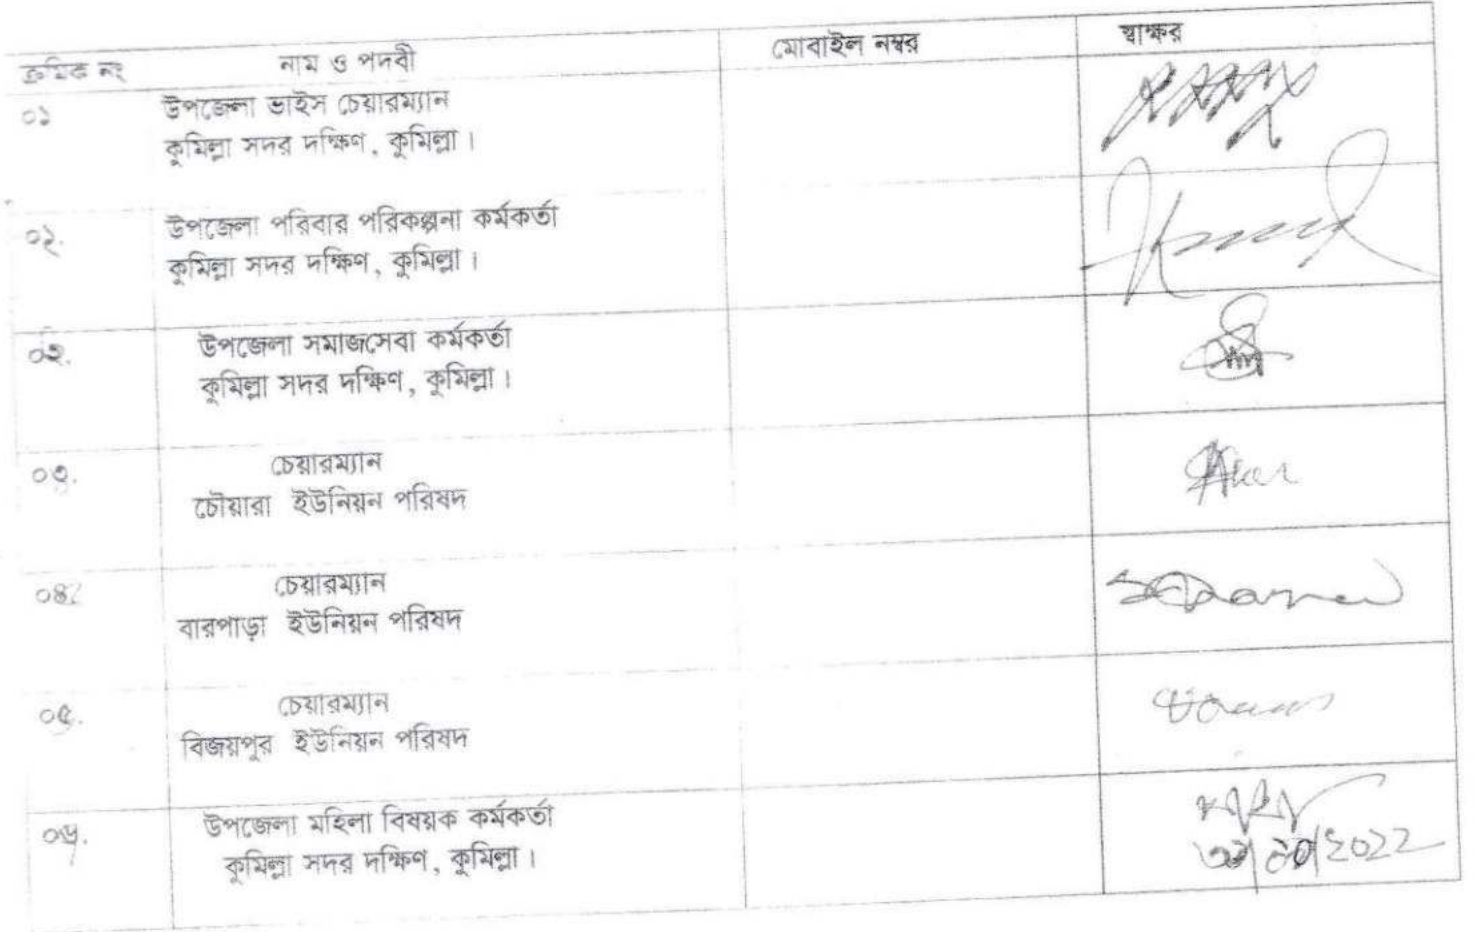 ক্রমিক নং নাম ও পদবী মোবাইল নম্বর স্বাক্ষর
০১ উপজেলা ভাইস চেয়ারম্যান
কুমিল্লা সদর দক্ষিণ, কুমিল্লা।
০২. উপজেলা পরিবার পরিকল্পনা কর্মকর্তা
কুমিল্লা সদর দক্ষিণ, কুমিল্লা।
০২. উপজেলা সমাজসেবা কর্মকর্তা
কুমিল্লা সদর দক্ষিণ, কুমিল্লা।
০৩. চেয়ারম্যান
চৌয়ারা ইউনিয়ন পরিষদ
০৪. চেয়ারম্যান
বারপাড়া ইউনিয়ন পরিষদ
০৫. চেয়ারম্যান
বিজয়পুর ইউনিয়ন পরিষদ
০৬. উপজেলা মহিলা বিষয়ক কর্মকর্তা
কুমিল্লা সদর দক্ষিণ, কুমিল্লা।